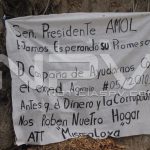 Sen. Presidente AMOL
Estamos Esperando su Promesa
D Campaña de Ayudarnos Con
el exed Agrario #05/2010
Antes q el Dinero y la Corrupción
Nos Roben Nuestro Hogar
ATT "Mismaloya"